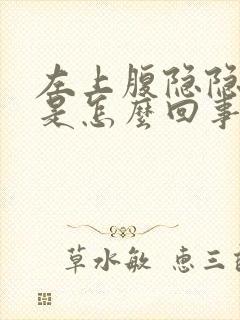 左上腹隐隐
是怎麼回事
草水敏 惠三